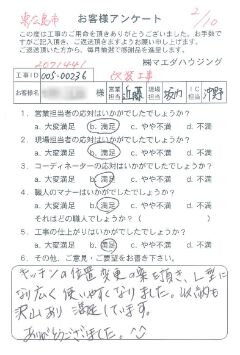 東広島市 お客様アンケート 2/10
この度は工事のご用命を頂きありがとうございました。お手数で
すがご記入頂き、ご返送頂きますようお願い申し上げます。
ご返送頂いた方から、毎月抽選で感謝品を進呈します。
2071441 ㈱マエダハウジング
工事ID 005-00236 改装工事
お客様名 様 営業担当 近藤 現場担当 IC担当 沖野
1. 営業担当者の応対はいかがでしたでしょうか?
a. 大変満足 b. 満足 c. やや不満 d. 不満
2. 現場担当者の応対はいかがでしたでしょうか?
a. 大変満足 b. 満足 c. やや不満 d. 不満
3. コーディネーターの応対はいかがでしたでしょうか?
a. 大変満足 b. 満足 c. やや不満 d. 不満
4. 職人のマナーはいかがでしたでしょうか?
a. 大変満足 b. 満足 c. やや不満 d. 不満
それはどの職人でしょうか?( )
5. 工事の仕上がりはいかがでしたでしょうか?
a. 大変満足 b. 満足 c. やや不満 d. 不満
6. その他、ご意見・ご要望をお書き下さい。
キッチンの位置変更の案を頂き、L字に
なり広く使いやすくなりました。収納も
沢山あり 満足しています。
ありがとうございました。